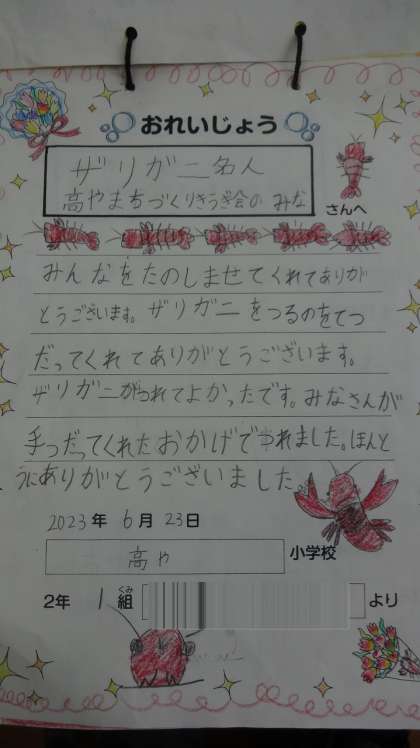 おれいじょう
ザリガニ名人
高やまちづくりきょうぎ会のみな
さんへ
みんなをたのしませてくれてありが
とうございます。ザリガニをつるのをてつ
だってくれてありがとうございます。
ザリガニがつれてよかったです。みなさんが
手つだってくれたおかげでつれました。ほんと
うにありがとうございました。
2023年6月23日
高や 小学校
2年 1組 より
くみ